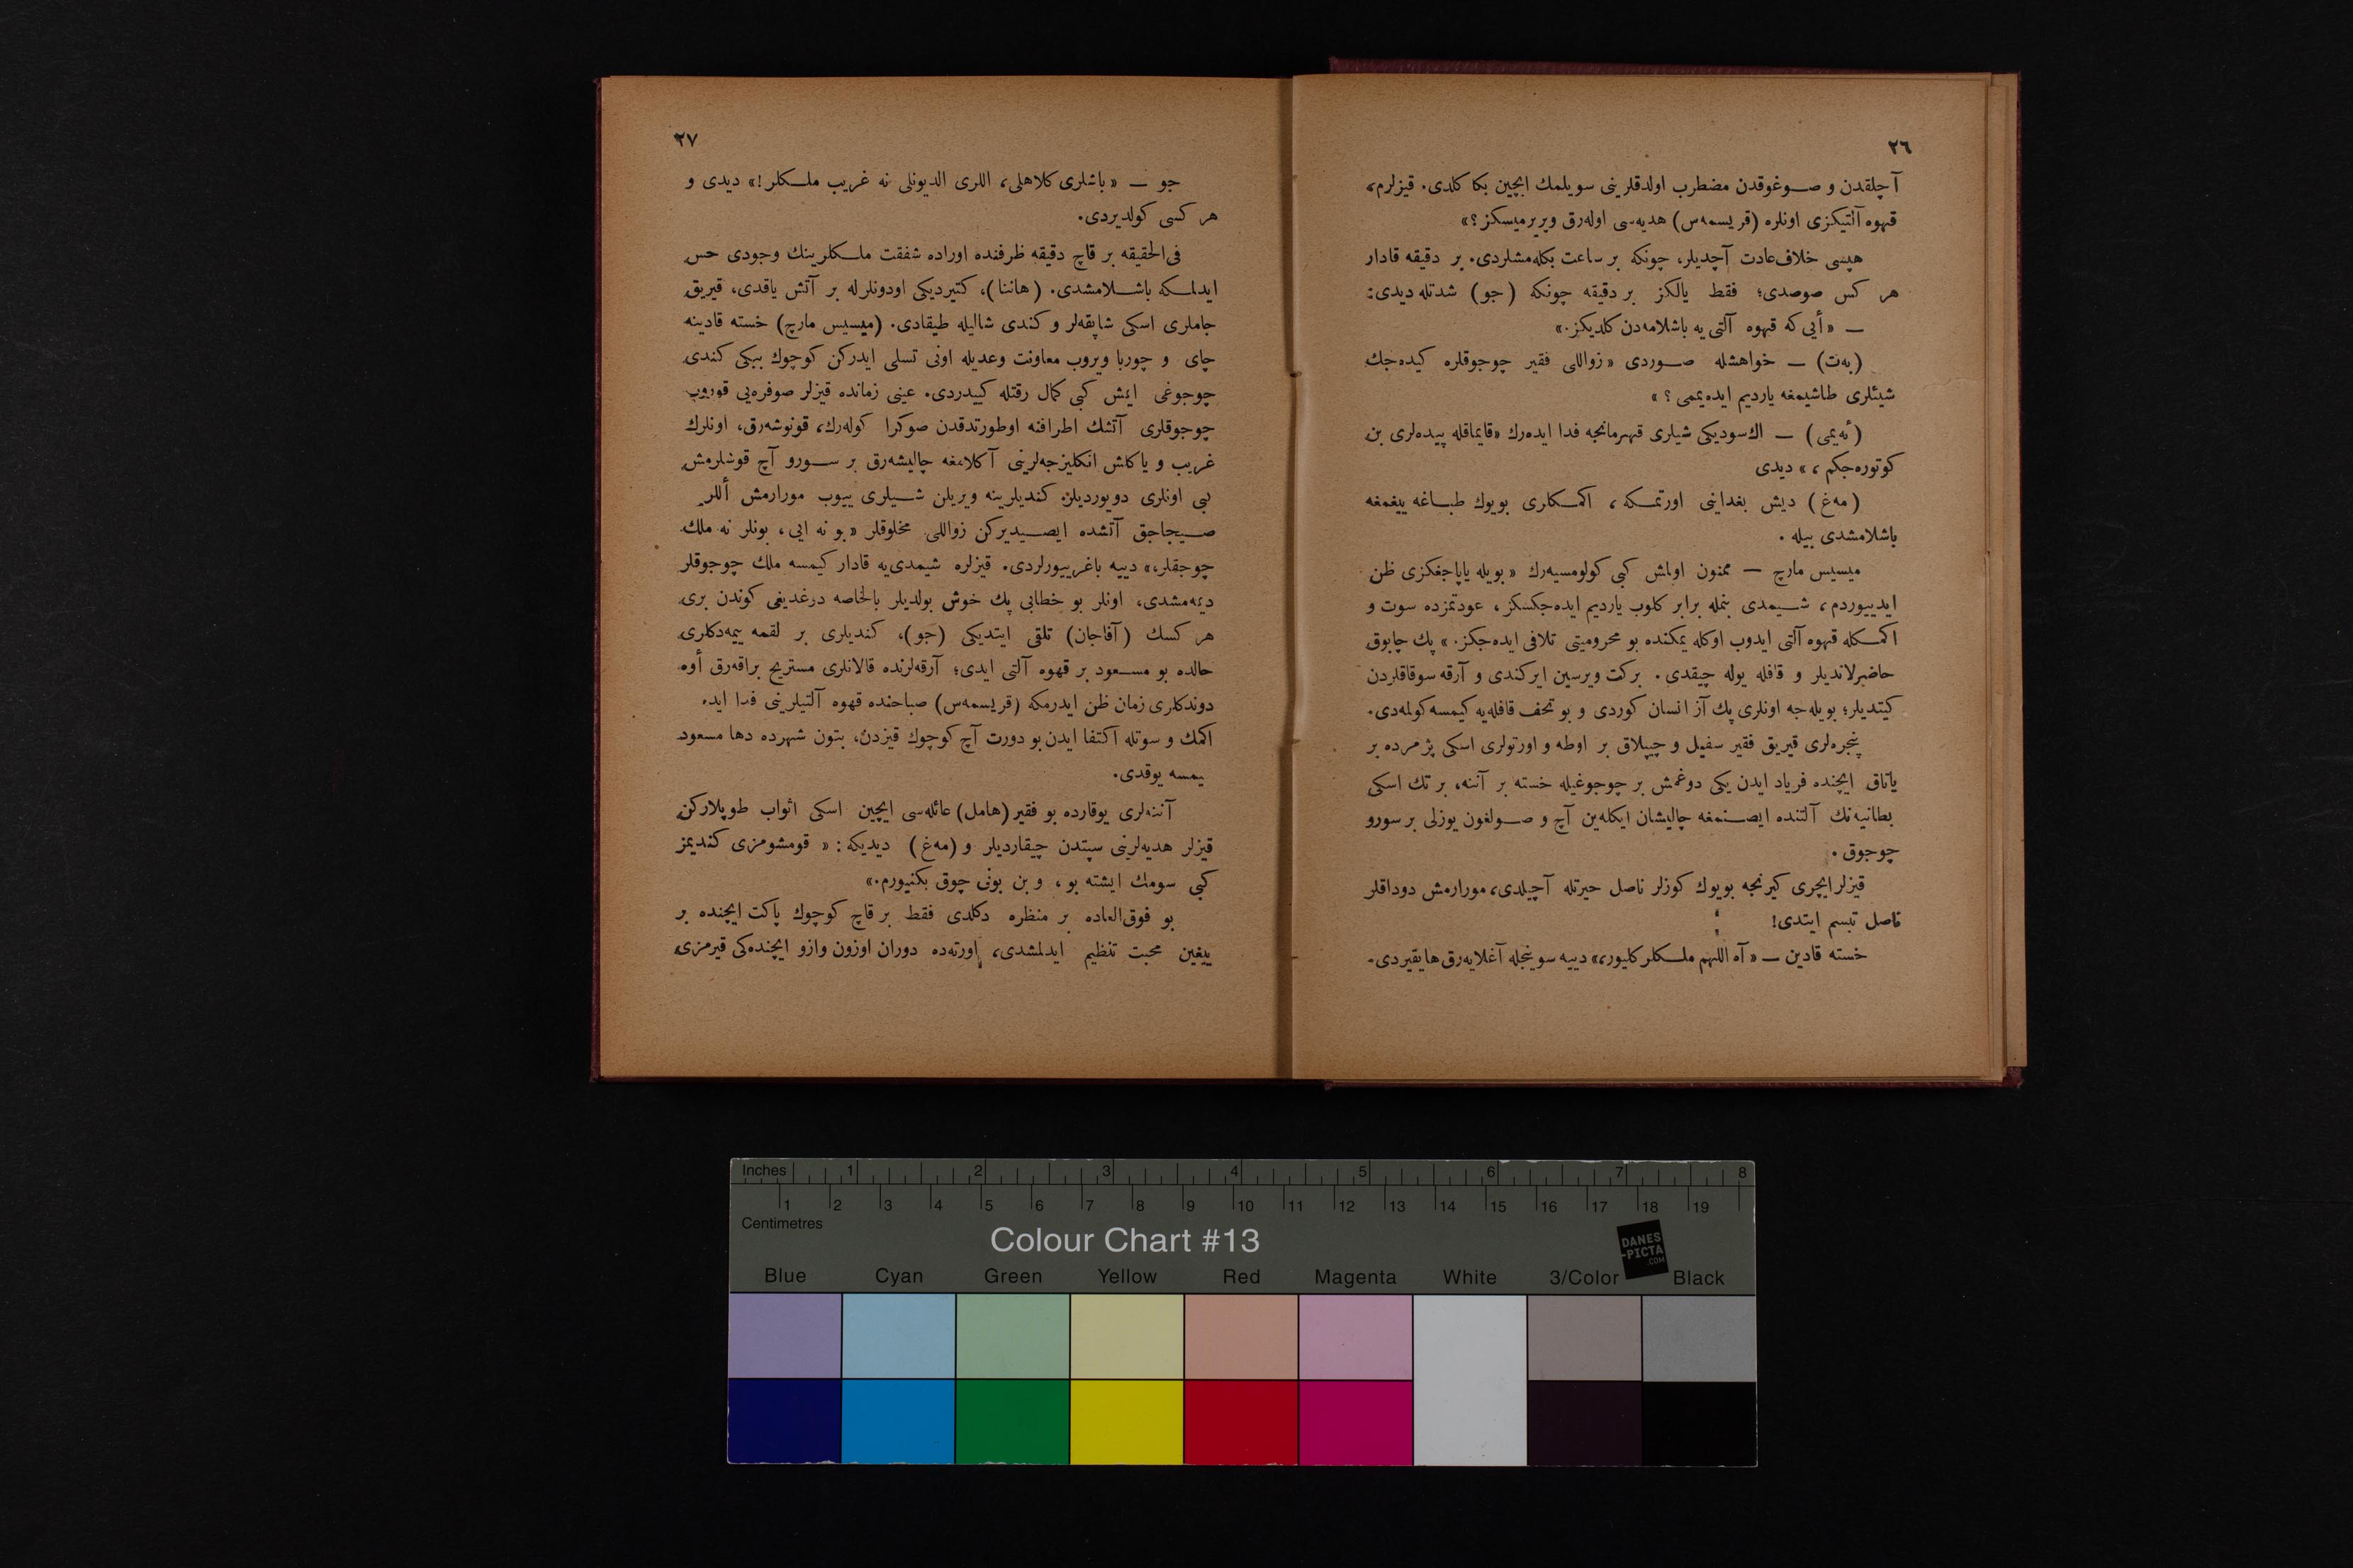 ٢٦
آچلقدن و صوغوقدن مضطرب اولدقلرینی سویلمك ایچین بكا كلدی. قیزلرم،
قهوه آلتیكزی اونلره (قریسمه‌س) هدیه‌سی اوله‌رق ویریرمیسكز؟»
هپسی خلاف‌عادت آچدیلر، چونكه بر ساعت بكله‌مشلردی. بر دقیقه قادار
هر كس صوصدی؛ فقط یالكز بر دقیقه چونكه (جو) شدتله دیدی:
— «أیی كه قهوه آلتی یه باشلامه‌دن كلدیكز.»
(به‌ت) — خواهشله صوردی «زواللی فقیر چوجوقلره كیده‌جك
شیئلری طاشیمغه یاردیم ایده‌یممی؟»
(ئه‌یمی) — اك‌سودیكی شیلری قهرمانجه فدا ایده‌رك «قایماقله پیده‌لری بن
كوتوره‌جكم،» دیدی
(مه‌غ) دیش بغداینی اورتمكه، اكمكلری بویوك طباغه ییغمغه
باشلامشدی بیله.
میسیس مارچ — ممنون اولمش كبی كولومسیه‌رك «بویله یاپاجغكزی ظن
ایدییوردم، شیمدی بنمله برابر كلوب یاردیم ایده‌جكسكز، عودتمزده سوت و
اكمكله قهوه آلتی ایدوب اوكله یمكنده بو محرومیتی تلافی ایده‌جكز.» پك چابوق
حاضرلاندیلر و قافله یوله چیقدی. بركت ویرسین ایركندی و آرقه سوقاقلردن
كیتدیلر؛ بویله‌جه اونلری پك آز انسان كوردی و بو تحف قافله‌یه كیمسه كولمه‌دی.
پنجره‌لری قیریق فقیر سفیل و چیپلاق بر اوطه و اورتولری اسكی پژمرده بر
یاتاق ایچنده فریاد ایدن یكی دوغمش بر چوجوغیله خسته بر آننه، بر تك اسكی
بطانیه‌نك آلتنده ایصنمغه چالیشان ایكله‌ین آچ و صولغون یوزلی بر سورو
چوجوق.
قیزلر ایچری كیرنجه بویوك كوزلر ناصل حیرتله آچیلدی، مورارمش دوداقلر
ناصل تبسم ایتدی!
خسته قادین — «آه اللهم ملكلر كلیور،» دییه سوینجله آغلایه‌رق هایقیردی.
٢٧
جو — «باشلری كلاهلی، اللری الدیونلی نه غریب ملكلر!» دیدی و
هر كسی كولدیردی.
فی‌الحقیقه بر قاچ دقیقه ظرفنده اوراده شفقت ملكلرینك وجودی حس
ایدلمكه باشلامشدی. (هاننا)، كتیردیكی اودونلرله بر آتش یاقدی، قیریق
جاملری اسكی شاپقه‌لر و كندی شالیله طیقادی. (میسیس مارچ) خسته قادینه
چای و چوربا ویروب معاونت وعدیله اونی تسلی ایدركن كوچوك ببكی كندی
چوجوغی ایمش كبی كمال رقتله كییدردی. عینی زمانده قیزلر صوفره‌یی قوروب
چوجوقلری آتشك اطرافنه اوطورتدقدن صوكرا كوله‌رك، قونوشه‌رق، اونلرك
غریب و یاكلش انكلیزجه‌لرینی آكلامغه چالیشه‌رق بر سورو آچ قوشلرمش
كبی اونلری دویوردیلر. كندیلرینه ویریلن شیلری ییوب مورارمش أللر
صیجاجق آتشده ایصیدیركن زواللی مخلوقلر «بو نه ایی، بونلر نه ملك
چوجقلر،» دییه باغرییورلردی. قیزلره شیمدی‌یه قادار كیمسه ملك چوجوقلر
دیمه‌مشدی، اونلر بو خطابی پك خوش بولدیلر بالخاصه درغدیغی كوندن بری
هر كسك (آقاجان) تلقی ایتدیكی (جو)، كندیلری بر لقمه ییمه‌دكلری
حالده بو مسعود بر قهوه آلتی ایدی؛ آرقه‌لرنده قالانلری مستریح براقه‌رق أوه
دوندكلری زمان ظن ایدرمكه (قریسمه‌س) صباحنده قهوه آلتیلرینی فدا ایده
اكمك و سوتله اكتفا ایدن بو دورت آچ كوچوك قیزدن، بتون شهرده دها مسعود
یمسه یوقدی.
آننه‌لری یوقارده بو فقیر (هامل) عائله‌سی ایچین اسكی اثواب طوپلاركن
قیزلر هدیه‌لرینی سپتدن چیقاردیلر و (مه‌غ) دیدیكه: «قومشومزی كندیمز
كبی سومك ایشته بو، و بن بونی چوق بكنیورم.»
بو فوق‌العاده بر منظره دكلدی فقط بر قاچ كوچوك پاكت ایچنده بر
ییغین محبت تنظیم ایدلمشدی، اورته‌ده دوران اوزون وازو ایچنده‌كی قیرمزی
Inches 1 2 3 4 5 6 7 8
1 2 3 4 5 6 7 8 9 10 11 12 13 14 15 16 17 18 19
Centimetres
Colour Chart #13
DANES
-PICTA
.COM
Blue Cyan Green Yellow Red Magenta White 3/Color Black